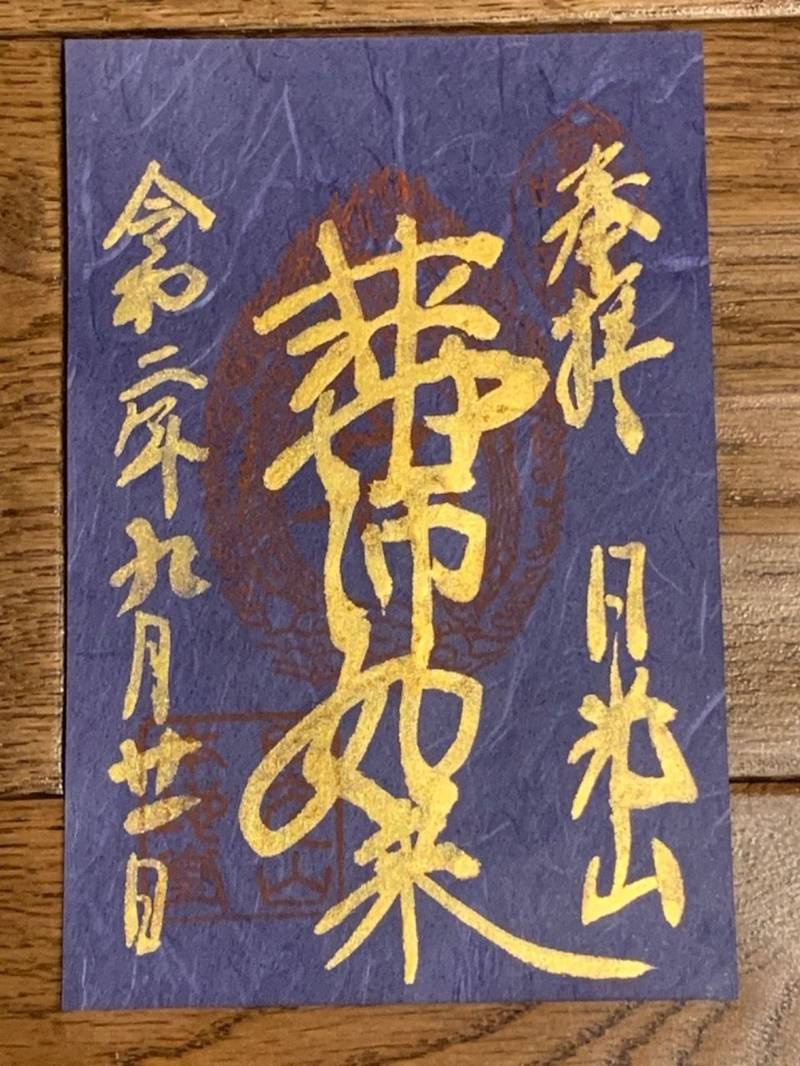 奉拝 日光山
薬師如来
令和二年九月廿一日